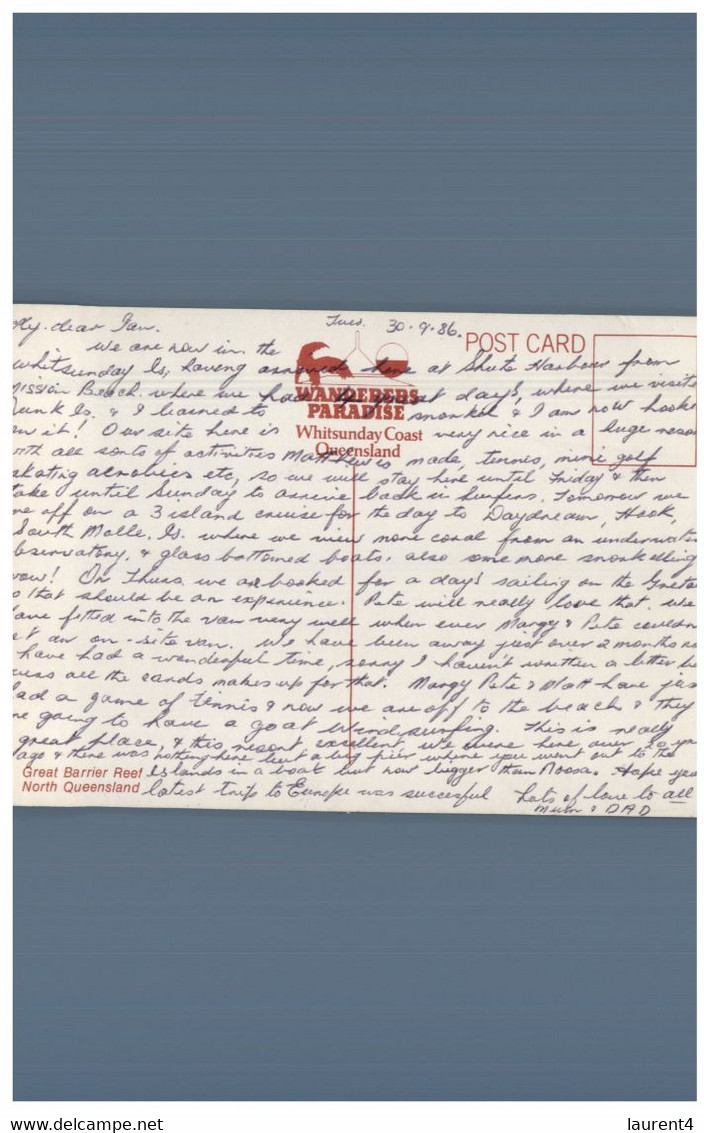 My dear Jan. Tues. 30-9-86.
POST CARD
We are now in the
Whitsunday Is, having arrived here at Shute Harbour from
Mission Beach where we had days, where we visite
Dunk Is. & I learned to snorkel & I am now hooke
on it! Our site here is very nice in a huge resor
WANDERERS
PARADISE
Whitsunday Coast
Queensland
with all sorts of activities Matthew is made, tennis, mini golf
skating aerobics etc, so we will stay here until Friday & then
take until Sunday to arrive back in Surfers. Tomorrow we
are off on a 3 island cruise for the day to Daydream, Hook,
South Molle, Is. where we view more coral from an underwater
observatory, & glass bottomed boats. also some more snorkelling
wow! On Thurs we are booked for a days sailing on the Gretel
so that should be an experience. Pete will really love that. We
have fitted into the van very well when ever Margy & Pete couldn
get an on-site van. We have been away just over 2 months no
& have had a wonderful time, sorry I haven't written a letter bu
guess all the cards makes up for that. Margy Pete & Matt have jus
had a game of tennis & now we are off to the beach & they
are going to have a go at wind surfing. This is really
great place, & this resort excellent. We were here over 20 y
ago & there was nothing here but a big pier where you went out to the
Great Barrier Reef Islands in a boat but now bigger than Noosa. Hope you
North Queensland latest trip to Europe was succesful Lots of love to all
Mum & DAD
laurent4